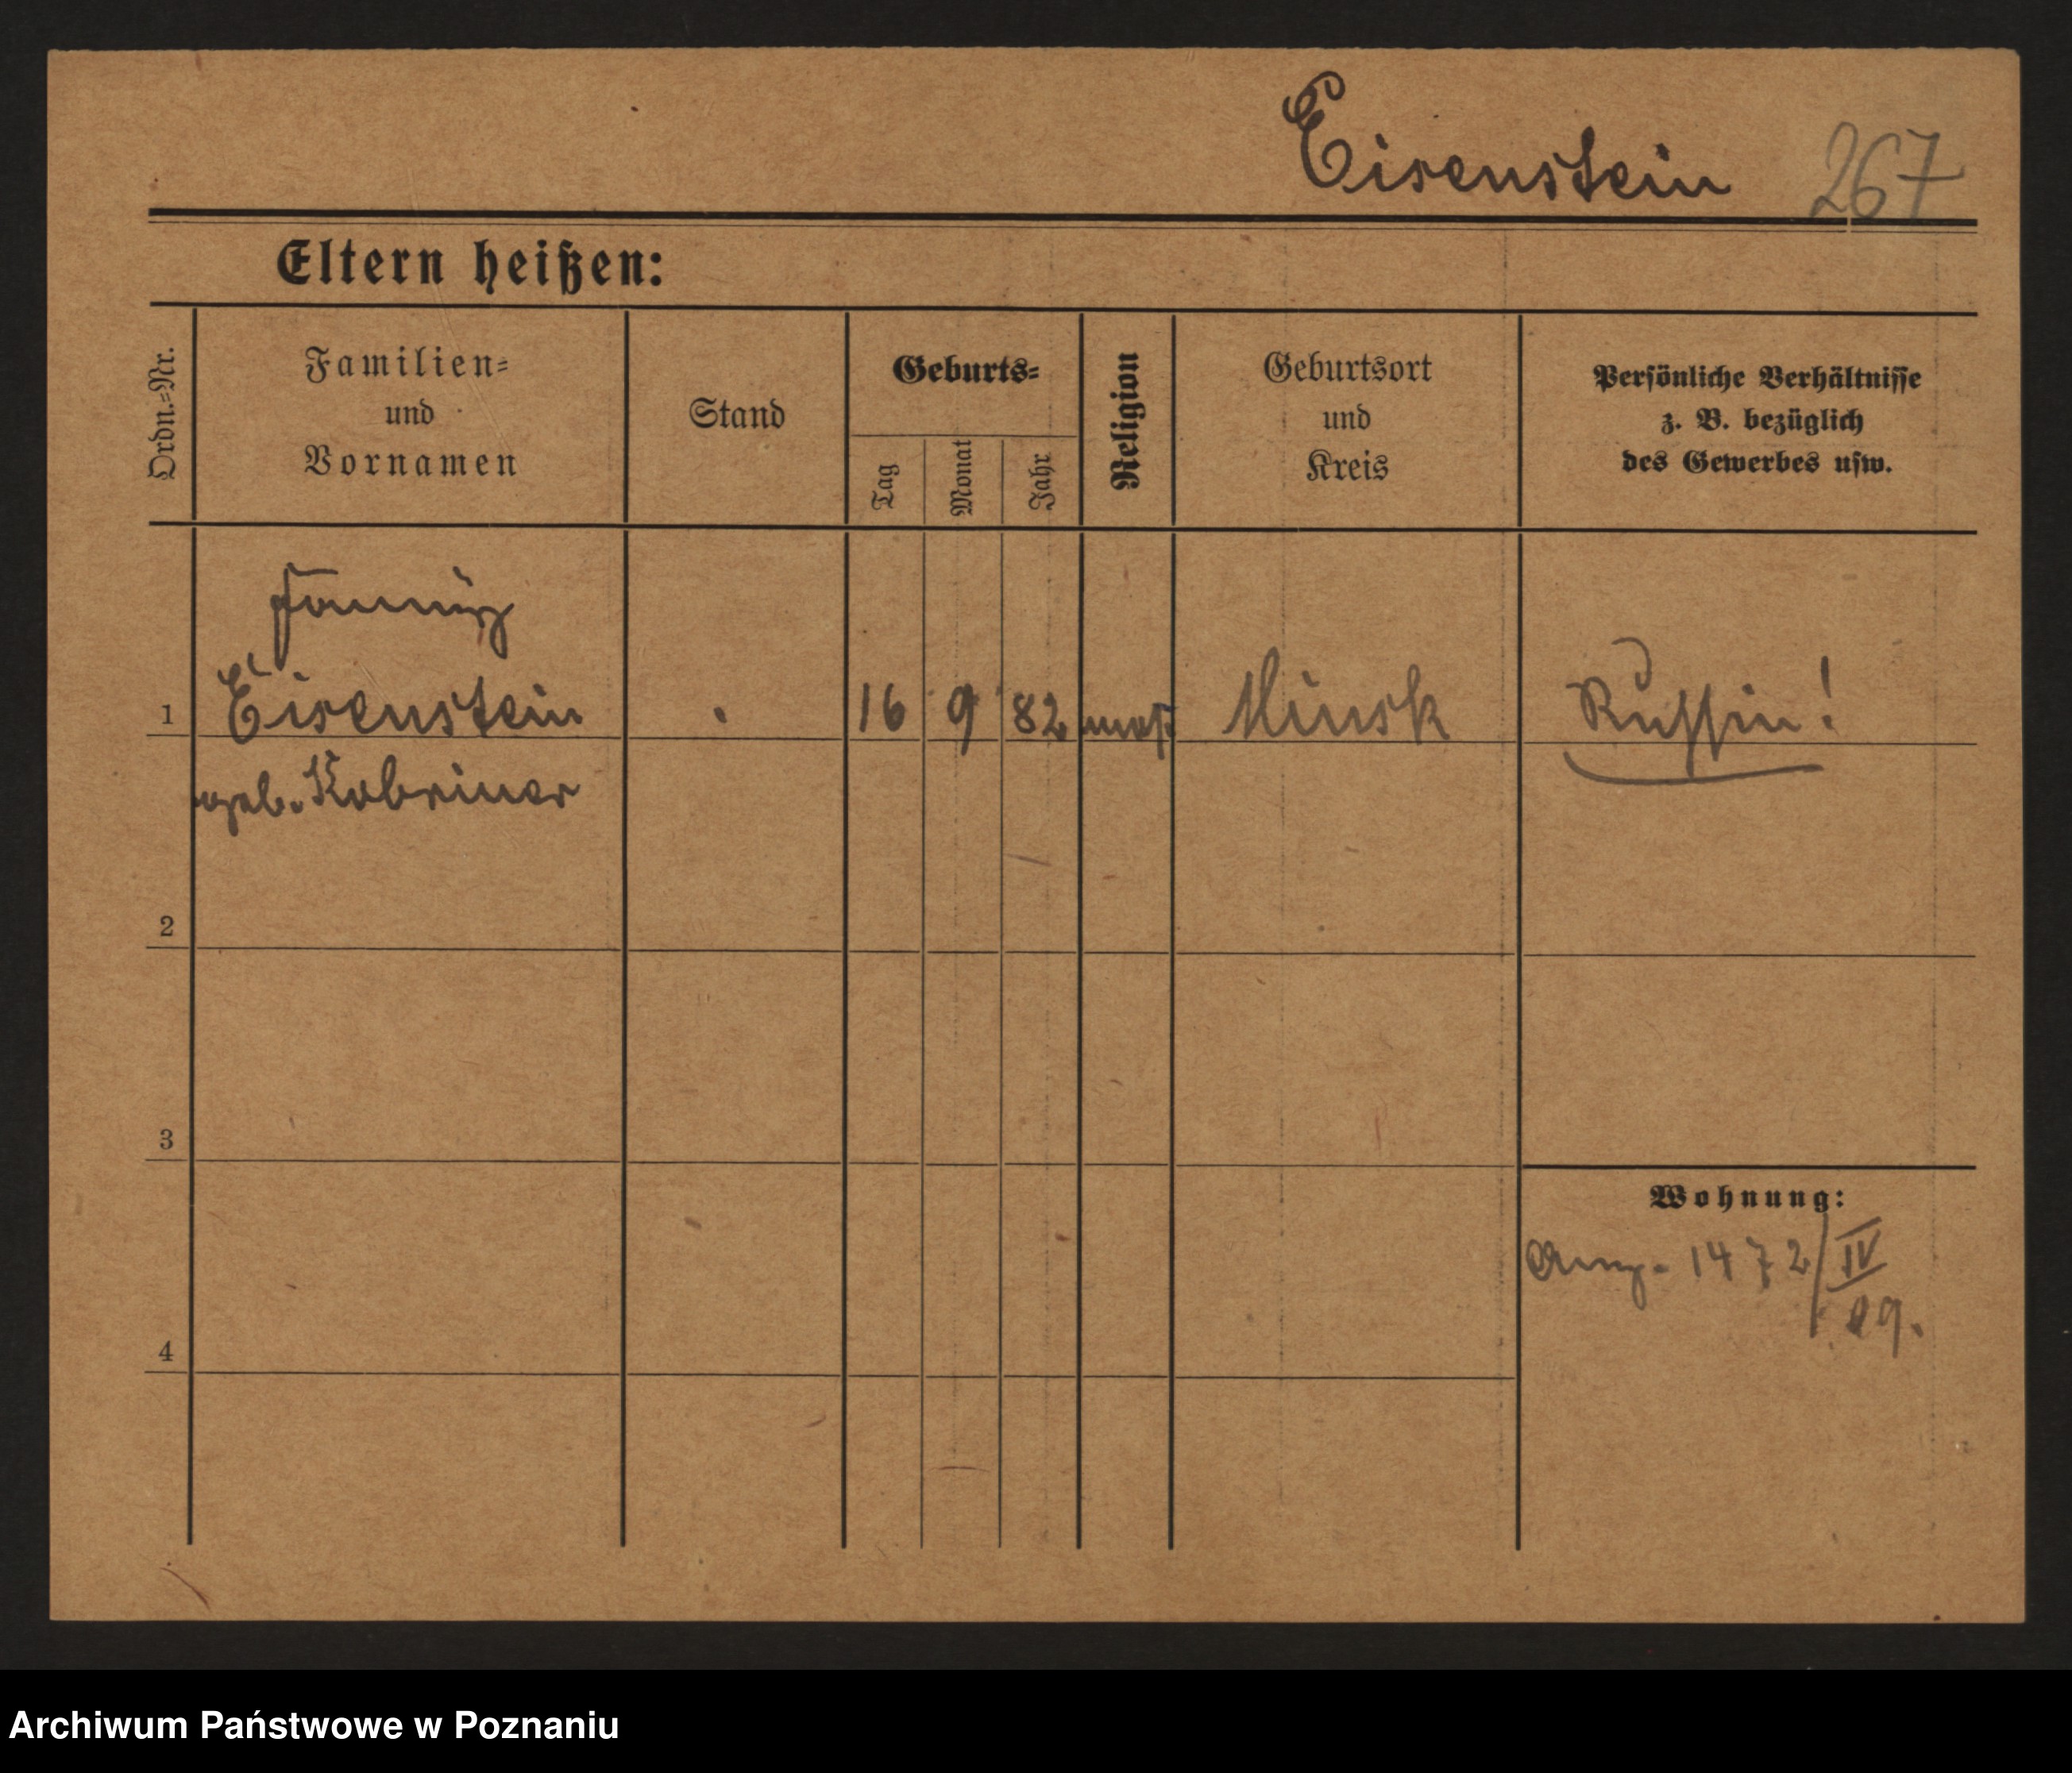 Eisenstein 267
Eltern heißen:
Ordn.-Nr.
Familien-
und
Vornamen
Stand
Geburts-
Tag
Monat
Jahr
Religion
Geburtsort
und
Kreis
Persönliche Verhältnisse
z. B. bezüglich
des Gewerbes usw.
1 Eisenstein 16 9 82 mos Minsk Russin!
geb. Kobriner
2
3
Wohnung:
1472/IV
09.
4
Archiwum Państwowe w Poznaniu